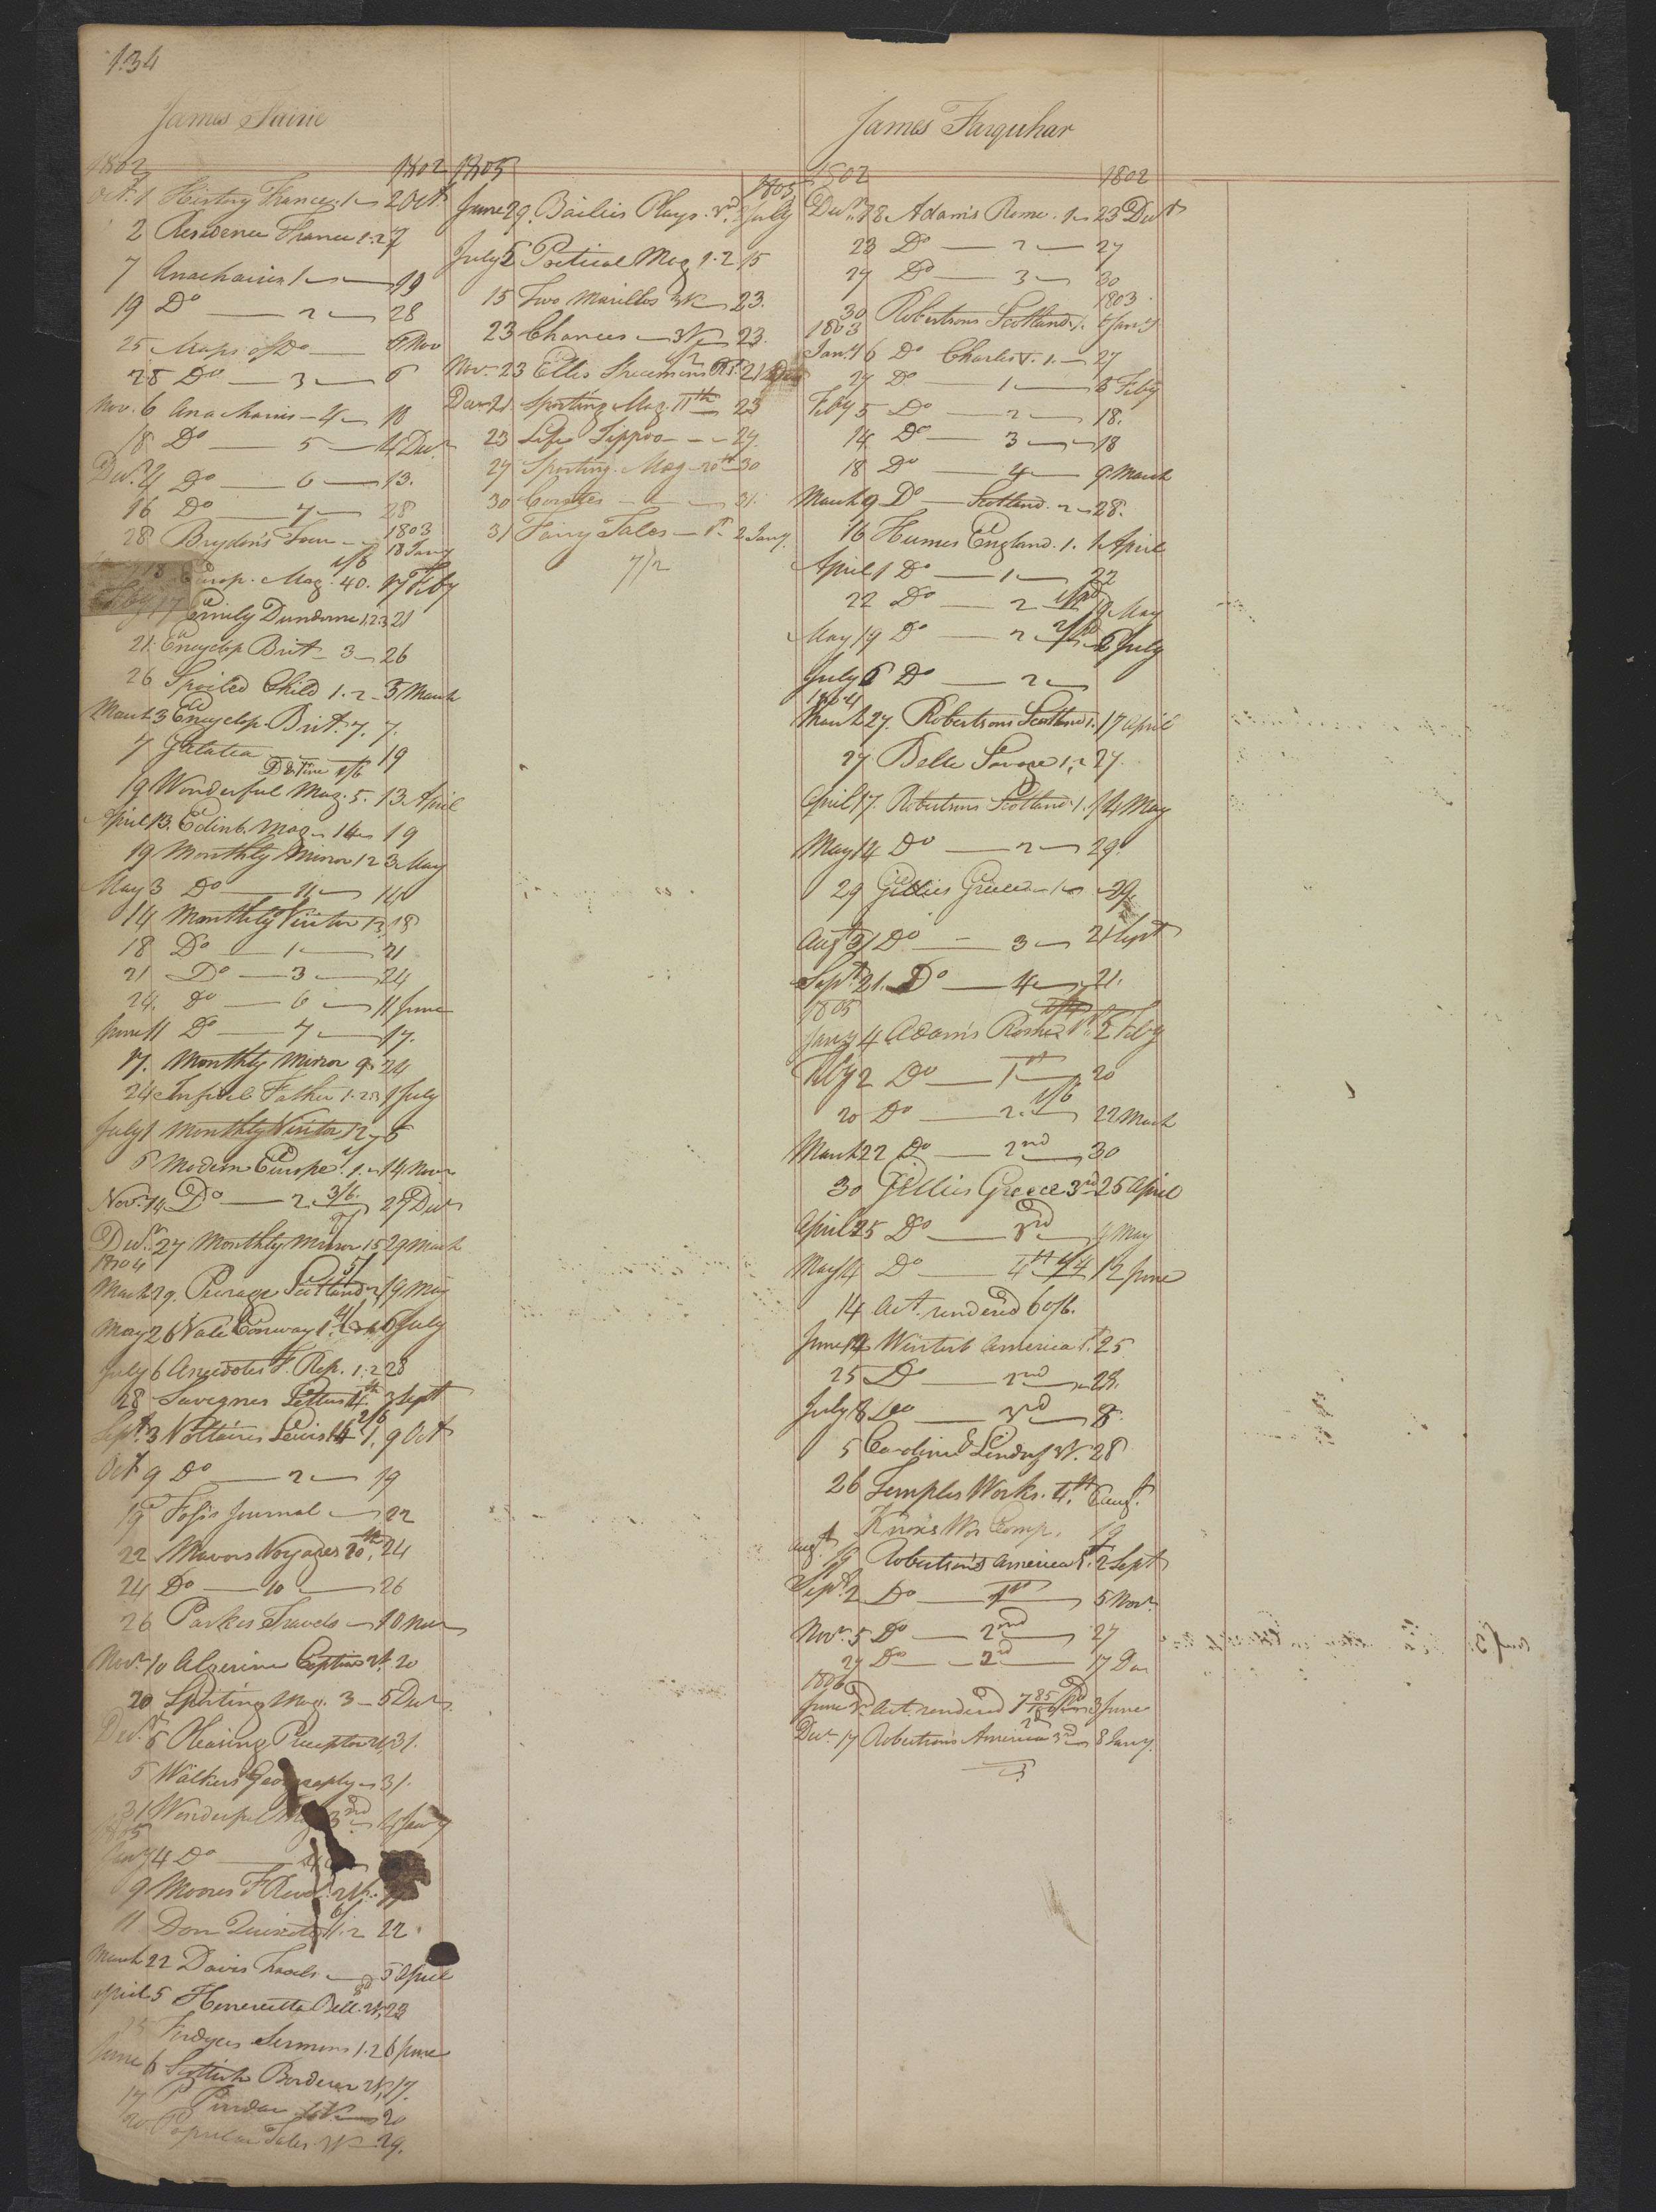 134
James Fairie
1802 1802
Octr. 1 History France 1 2 Octr
2 Residence France 1.2 7
7 Anacharsis 1 19
19 Do 2 28
25 Maps of Do 6 Nov
28 Do 3 6
Nov. 6 Anacharsis 4 18
18 Do 5 4 Decr
Decr. 4 Do 6 13.
16 Do 7 28
28 Brydon's Tour 1803
1/6 18 Jany
18 Europ. Mag. 40. 17 Feby
Feby 17 Emily Dundorne 1.2.3 21
21. Encyclop Brit 3 26
26 Spoiled Child 1.2 3 March
March 3 Encyclop. Brit. 7. 7.
7 Galatea 19
Do fine 1/6
19 Wonderful Mag. 5. 13. April
April 13. Edinb. Mag 14 19
19 Monthly Mirror 12 3 May
May 3 Do 11 14
14 Monthly Visitor 13 18
18 Do 1 21
21 Do 3 24
24. Do 6 11 June
June 11 Do 7 17.
17. Monthly Mirror 9 24
24 Infidel Father 1.2.3 1 July
July 1 Monthly Visitor 12 6
6 Modern Europe 1. 14 Novr
Novr. 14 Do 2 3/6. 27 Decr
Decr. 27 Monthly Mirror 15 29 March
1804 5/
March 29. Peerage Scotland 2 19 May
May 26 Vale Conway 6 July
July 6 Anecdotes F. Rep. 1.2 28
28 Sevegnes Letters 4th 3 Sept
2/6
Sept. 3 Voltaires Lewis 14 1. 9 Oct
Oct 9 Do 2 19
19 Foss's Journal 22
22 Mavors Voyages 20th. 24
24 Do 10 26
26 Parkes Travels 10 Nov
Novr 10 Algerine Captive 2V. 20
20 Sporting Mag. 3 5 Decr.
Decr 5 Pleasing Preceptor 2V 31.
5 Walkers Geography 31.
31 Wonderful Mag 3rd 4 Jany
1805
Jany 4 Do 4
9 Moores F Revol. 2V. 11
11 Don Quixote 1.2 22
March 22 Davis Travels 5 April
April 5 Henrietta Bell. 2V. 23
Fordyces Sermons 1.2 6 June
June 6 Scottish Borderer 2V. 17.
17 P Pindar 20
20. Popular Tales 29.
1805
1805
June 29. Bailies Plays. July
July 5 Poetical Mag 1.2 15
15 Two Marillos 3V 23.
23 Chances 3V 23.
Nov. 23 Ellis Specimens 21 Decr
Decr 21. Sporting Mag. 11th 23
23 Life Tippoo 27.
27 Sporting Mag 20th 30
30 Comtes 31.
31 Fairy Tales 1st. 2 Jany.
7/2
James Farquhar
1802 1802
Decr. 18 Adam's Rome. 1 23 Decr
23 Do 2 27
27 Do 3 30
1803
30 Robertsons Scotland. 1. 6 Jany
1803
Jany. 6 Do Charles V. 1. 27
27 Do 1 5 Feby
Feby 5 Do 2 18.
14 Do 3 18
18 Do 4 9 March
March 9 Do Scotland. 2 28.
16 Humes England. 1. 1 April
April 1 Do 1 22
22 Do 2 19 May
May 19 Do 2 6 July
July 6 Do 2
1804
March 27. Robertsons Scotland 1. 17 April
27 Belle Savage 1.2 27.
April 17. Robertsons Scotland. 1. 14 May
May 14 Do 2 29.
29 Gillies Greece 1 29
Augt 31 Do 3 21 Sept
Sept. 21. Do 4 21.
1805
Jany 4 Adams Rome 1st. 2 Feby
Feby 2 Do 1st 20
1/6
20 Do 2. 22 March
March 22 Do 2nd 30
30 Gillies Greece 3rd 25 April
April 25 Do 3rd 4 May
May 4 Do 4th 12 June
14 Act. rendered 6o/6.
June 14 Winterb America 1st. 25
25 Do 2nd 28.
July 8 Do 3rd 8.
5 Caroline Lindsay 3V. 28
26 Temples Works. 4th. 6 Augt.
Knox's Wor Comp. 19
Augt. 19 Robertsons America 1st. 2 Sept
Sept. 2 Do 1st 5 Novr.
Novr. 5 Do 2nd 27
27 Do 2d 17 Dec
1806
June 3d Act. rendered 3 June
Decr. 17 Robertsons America 3rd 8 Jany.